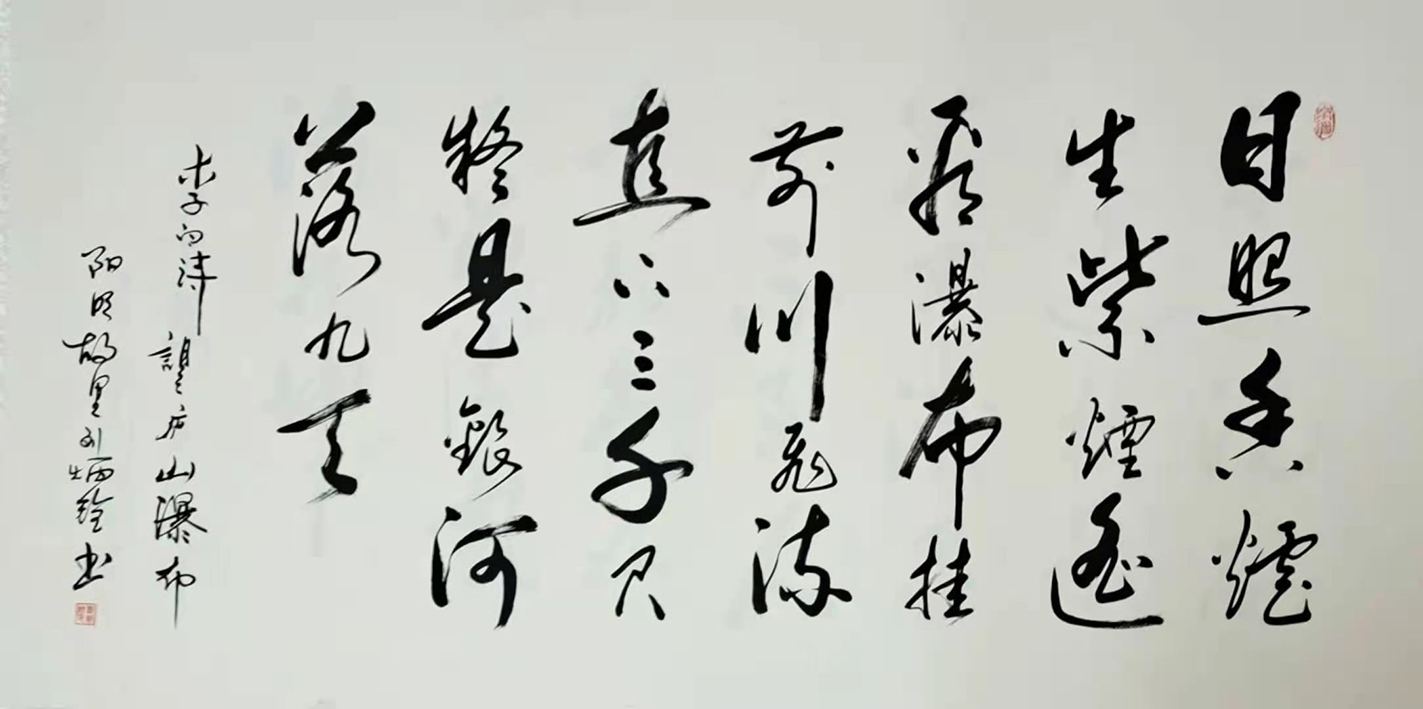 日照香爐
生紫煙遙
看瀑布挂
前川飛流
直下三千尺
疑是銀河
落九天
李白诗 望庐山瀑布
阳明故里刘炳銓书